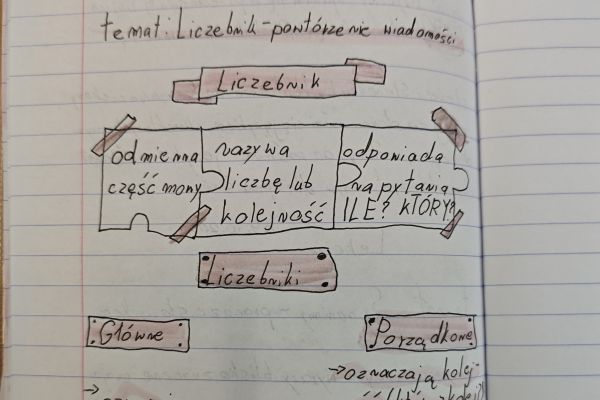 temat: Liczebnik - powtórzenie wiadomości
Liczebnik
odmienna
część mowy
nazywa
liczbę lub
kolejność
odpowiada
na pytania
ILE? KTÓRY?
Liczebniki
Główne
Porządkowe
→
→ oznaczają kolej-